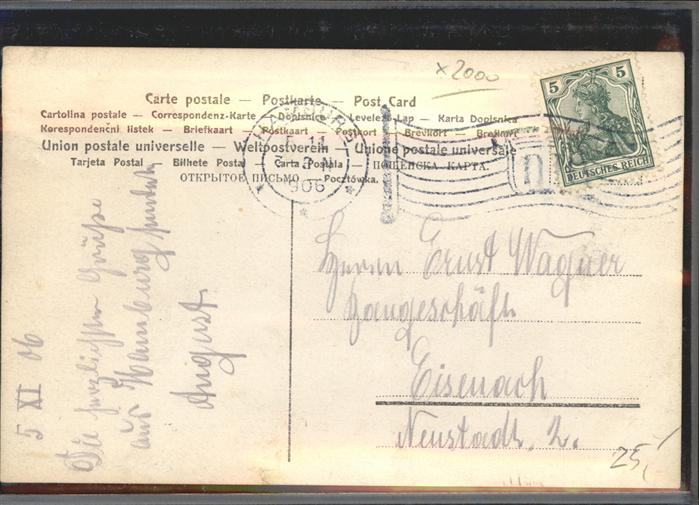 x 2000
Carte postale — Postkarte — Post Card
Cartolina postale — Correspondenz-Karte — Dopisnice — Levelező-Lap — Karta Dopisnica
Korespondenční listek — Briefkaart — Postkaart — Postkort — Brevkort — Brefkort
Union postale universelle — Weltpostverein — Unione postale universale
Tarjeta Postal — Bilhete Postal — Carta Postala — ПОЩЕНСКА КАРТА.
ОТКРЫТОЕ ПИСЬМО — Pocztówka.
HAMBURG
5.11
906
5 5
DEUTSCHES REICH
Herrn Ernst Wagner
Baugeschäft
Eisenach
Neustadt. 2.
25,
5 XI 06
Die herzlichsten Grüße
aus Hamburg sendet
August.